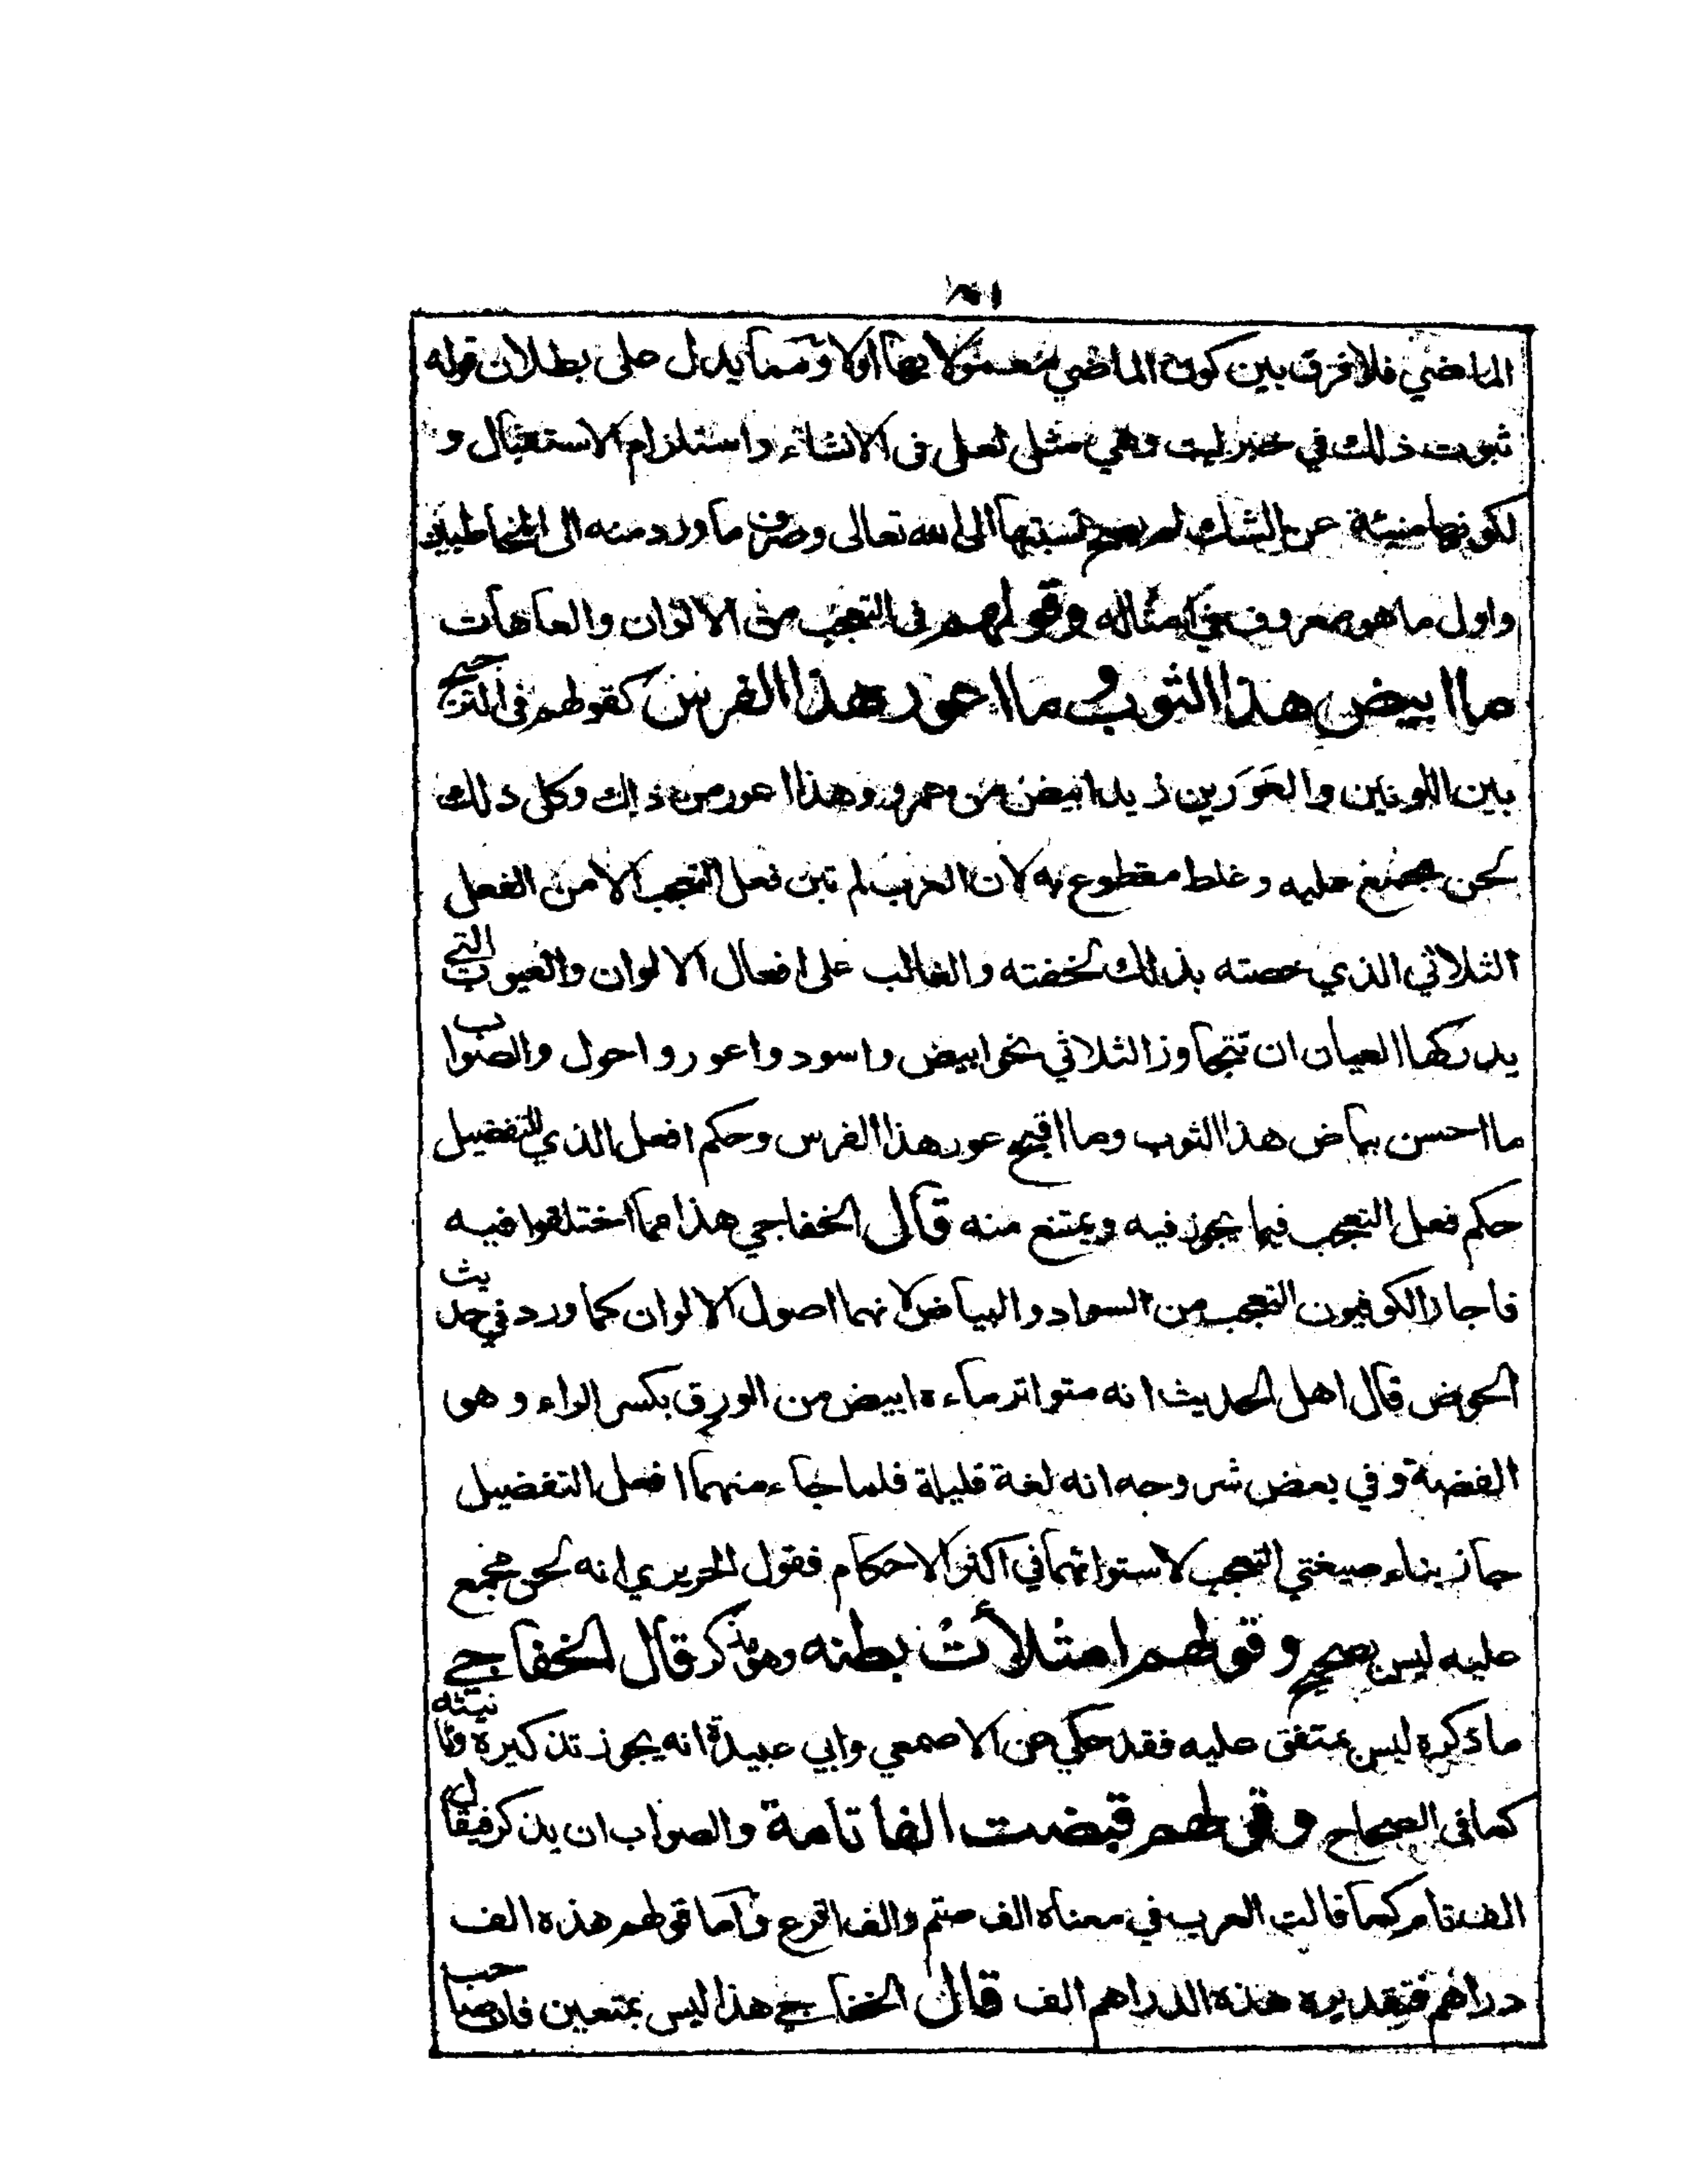 الماضي فلا فرق بين كون الماضي معمولا بها اولا ومما يدل على بطلان قوله
ثبوت ذلك في خبر ليت وهي مثل لعل فى الانشاء واستلزام الاستقبال و
لكونها منبئة عن الشك لم يصح نسبتها الى الله تعالى وصرف ما ورد منه الى المخاطبين
واول ما هو معروف في امثاله وقولهم فى التعجب من الالوان والعاهات
ما ابيض هذا الثوب وما اعور هذا الفرس كقولهم فى الترجيح
بين اللونين والعَوَرين زيد ابيض من عمرو وهذا اعور من ذاك وكل ذلك
لحن مجمع عليه وغلط مقطوع به لان العرب لم تبن فعل التعجب الا من الفعل
الثلاثي الذي خصته بذلك لخفته والغالب على افعال الالوان والعيوب التي
يدركها العيان ان تتجاوز الثلاثي نحو ابيض واسود واعور واحول والصواب
ما احسن بياض هذا الثوب وما اقبح عور هذا الفرس وحكم افعل الذي للتفضيل
حكم فعل التعجب فيما يجوز فيه ويمتنع منه قال الخفاجي هذا مما اختلفوا فيه
فاجاز الكوفيون التعجب من السواد والبياض لانهما اصول الالوان كما ورد في حديث
الحوض قال اهل الحديث انه متواتر ماءه ابيض من الورق بكسر الراء وهو
الفضة وفي بعض شروحه انه لغة قليلة فلما جاء منهما افعل التفضيل
جاز بناء صيغتي التعجب لاستوائهما في اكثر الاحكام فقول الحريري انه لحن مجمع
عليه ليس بصحيح وقولهم امتلأتْ بطنه وهو مذكر قال الخفاجي
ما ذكره ليس بمتفق عليه فقد حكي عن الاصمعي وابي عبيدة انه يجوز تذكيره وتانيثه
كما فى الصحاح وقولهم قبضت الفا تامة والصواب ان يذكر فيقال
الف تام كما قالت العرب في معناه الف صتم والف اقرع واما قولهم هذه الف
دراهم فتقديره هذه الدراهم الف قال الخفاجي هذا ليس بمتعين فان صاحب